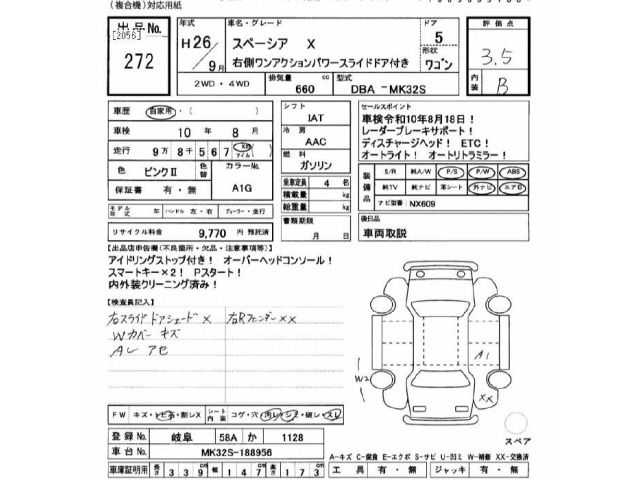 (複合機)対応用紙
出品No. [2056] 272
H26/9月
車名・グレード
スペーシア X
右側ワンアクションパワースライドドア付き
ドア 5
形状 ワゴン
評価点 3.5
内装 B
2WD・4WD
排気量 660 cc
型式 DBA-MK32S
車歴 自家用・( )
車検 10年 8月
走行 9万8千567 Km マイル
色 ピンクⅡ 色替 カラーNo. A1G
保証書 有・無
モデル年式 年 ハンドル 左・右 ディーラー・並行
リサイクル料金 9,770円 預託済
シフト IAT
冷房 AAC
燃料 ガソリン
乗車定員 4名
積載量 kg
総重量 kg
書類期限 月 日
セールスポイント
車検令和10年8月18日!
レーダーブレーキサポート!
ディスチャージヘッド! ETC!
オートライト! オートリトラミラー!
装備品 S/R 純A/W P/S P/W ABS
純TV 純ナビ 革シート 外ナビ エアB
ナビ型番 NX609
後日品
車両取説
【出品店申告欄(不良箇所・欠品・注意事項等)】
アイドリングストップ付き! オーバーヘッドコンソール!
スマートキー×2! Pスタート!
内外装クリーニング済み!
【検査員記入】
右スライドドアシェード× 右Rフェンダー××
Wカバー キズ
Aレ アセ
A1
W2
XX
スペア
FW キズ・トビ石・割レX シート内装 コゲ・穴・汚レ・シミ・破レ・スレ
登録No. 岐阜 58A か 1128
車台No. MK32S-188956
A-キズ C-腐食 E-エクボ S-サビ U-凹ミ W-補修 XX-交換済
車庫証明用 長さ 339 幅 147 高さ 173 工具 有・無 ジャッキ 有・無